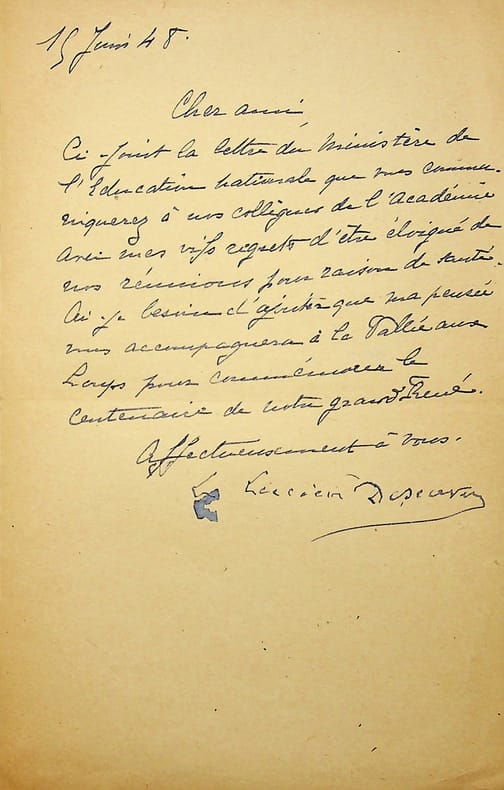 15 Juin 48.
Cher ami
Ci-joint la lettre du Ministère de
l'Education nationale que vous commu-
niquerez à nos collègues de l'Académie
avec mes vifs regrets d'être éloigné de
nos réunions pour raison de santé.
Ai-je besoin d'ajouter que ma pensée
vous accompagnera à la Vallée aux
Loups pour commémorer le
centenaire de notre grand René.
Affectueusement à vous.
Lucien Descaves